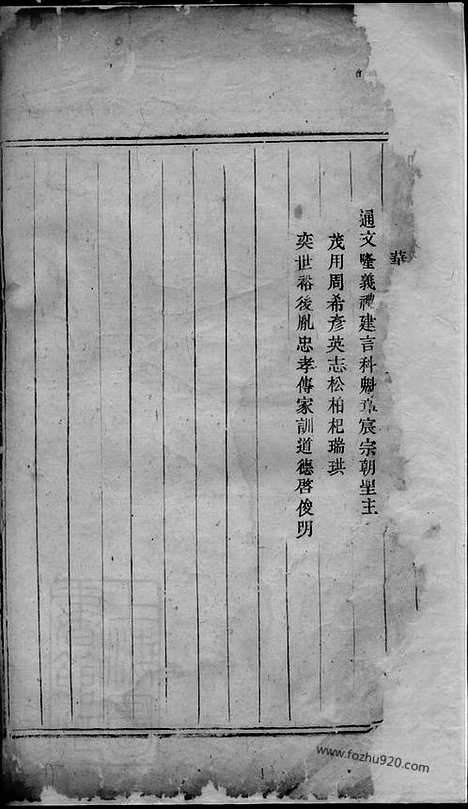 華
通文隆義禮建言科魁草宸宗朝聖主
茂用周希彥英志松柏杞瑞珙
奕世裕後胤忠孝傳家訓道德啓俊明
www.fozhu920.com